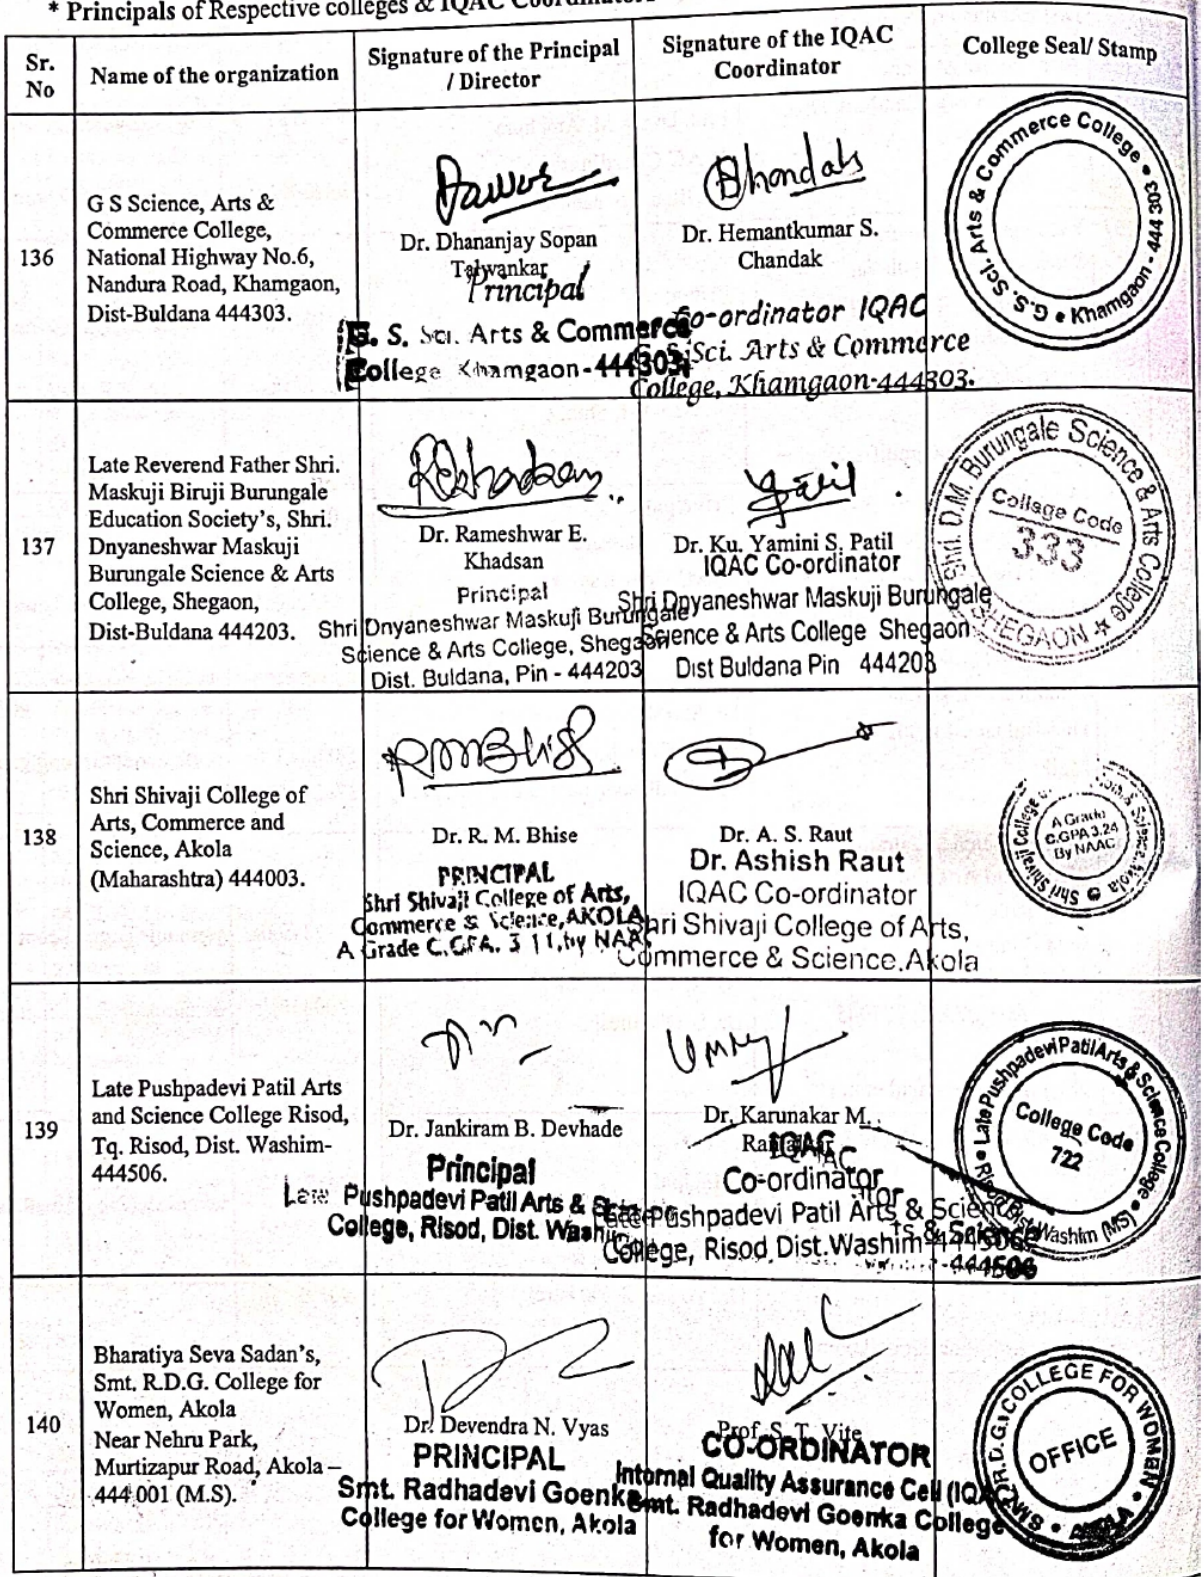 * Principals of Respective colleges & IQAC
Sr. No
Name of the organization
Signature of the Principal / Director
Signature of the IQAC Coordinator
College Seal/ Stamp
136
G S Science, Arts &
Commerce College,
National Highway No.6,
Nandura Road, Khamgaon,
Dist-Buldana 444303.
Dr. Dhananjay Sopan
Talwankar
Principal
G. S. Sci. Arts & Commerce
College Khamgaon-444303
Chandak
Dr. Hemantkumar S.
Chandak
Co-ordinator IQAC
Sci. Arts & Commerce
College, Khamgaon-444303.
G.S. Sci. Arts & Commerce College • Khamgaon - 444 303
137
Late Reverend Father Shri.
Maskuji Biruji Burungale
Education Society's, Shri.
Dnyaneshwar Maskuji
Burungale Science & Arts
College, Shegaon,
Dist-Buldana 444203.
Dr. Rameshwar E.
Khadsan
Principal
Shri Dnyaneshwar Maskuji Burungale
Science & Arts College, Shegaon
Dist. Buldana, Pin - 444203
Patil
Dr. Ku. Yamini S. Patil
IQAC Co-ordinator
Shri Dnyaneshwar Maskuji Burungale
Science & Arts College Shegaon
Dist Buldana Pin 444203
Shri. D.M. Burungale Science & Arts College
SHEGAON
College Code
333
138
Shri Shivaji College of
Arts, Commerce and
Science, Akola
(Maharashtra) 444003.
RMBhise
Dr. R. M. Bhise
PRINCIPAL
Shri Shivaji College of Arts,
Commerce & Science, AKOLA
A Grade C.G.P.A. 3 11, by NAAC
Dr. A. S. Raut
Dr. Ashish Raut
IQAC Co-ordinator
Shri Shivaji College of Arts,
Commerce & Science.Akola
Shri Shivaji College Science, Akola
A Grade
C.GPA 3.24
By NAAC
139
Late Pushpadevi Patil Arts
and Science College Risod,
Tq. Risod, Dist. Washim-
444506.
Dr. Jankiram B. Devhade
Principal
Late Pushpadevi Patil Arts &
College, Risod, Dist. Washim
Dr. Karunakar M.
IQAC
Co-ordinator
Late Pushpadevi Patil Arts & Science
College, Risod, Dist.Washim
ts & Science
-444506
Late Pushpadevi Patil Arts & Science College • Risod Dist Washim (MS)
College Code
722
140
Bharatiya Seva Sadan's,
Smt. R.D.G. College for
Women, Akola
Near Nehru Park,
Murtizapur Road, Akola –
444 001 (M.S).
Dr. Devendra N. Vyas
PRINCIPAL
Smt. Radhadevi Goenka
College for Women, Akola
Prof. S. T. Vite
CO-ORDINATOR
Internal Quality Assurance Cell (IQAC)
Smt. Radhadevi Goenka College
for Women, Akola
SMT. R.D.G. COLLEGE FOR WOMAN • AKOLA
OFFICE